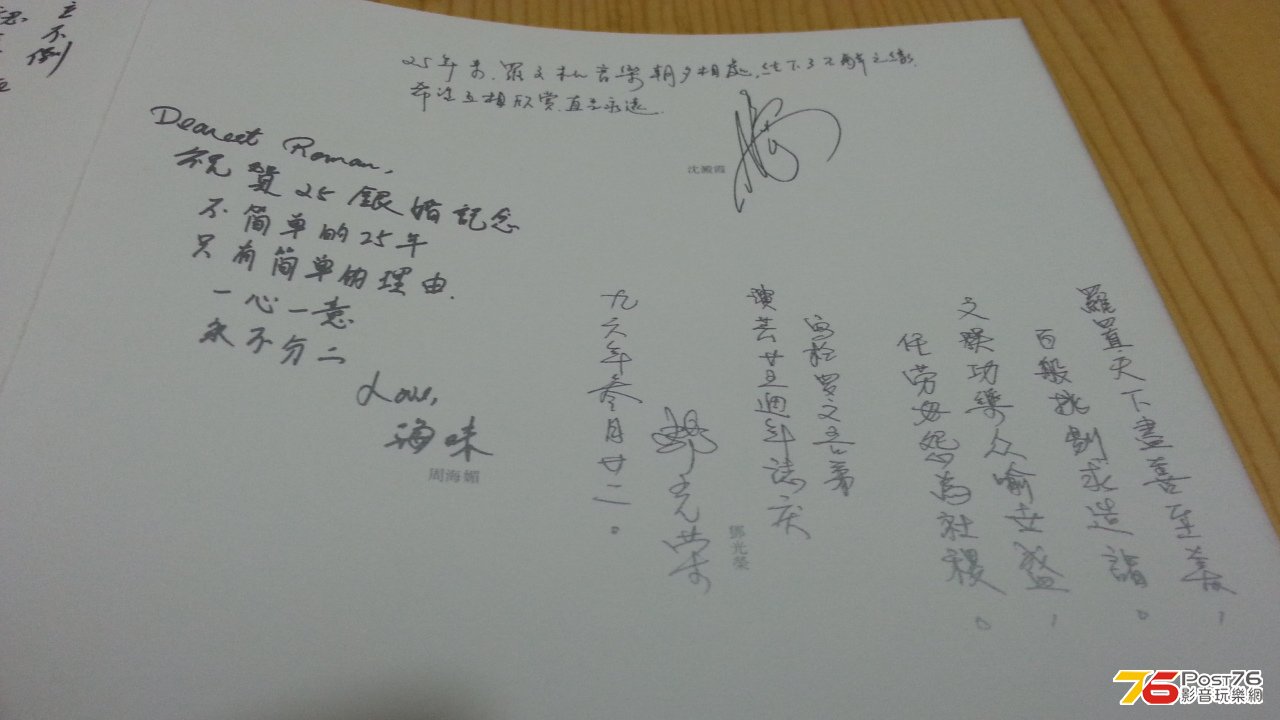 主
不
倒
25年来.羅文和音樂朝夕相處,結下了不解之緣.
希望互相欣赏直至永遠.
沈殿霞
Dearest Roman,
祝賀25銀婚記念
不簡単的25年
只有簡単的理由.
一心一意
永不分二
Love,
海味
周海媚
羅置天下盡善至善,
百般挑剔求造詣。
文娛功樂众喻世盛,
任劳毋怨為社稷。
寫於罗文吾弟
演芸廿五週年誌庆
鄧光荣
鄧光榮
九六年叁月廿二。
76 Post76
影音玩樂網